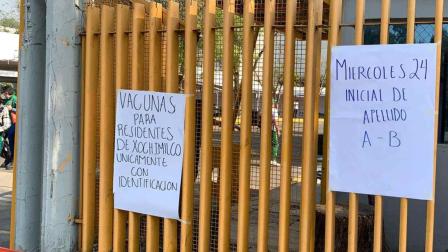 VACUNAS
PARA
RESIDENTES
DE XOCHIMILCO
UNICAMENTE
CON
IDENTIFICACION
MIERCOLES 24
INICIAL DE
APELLIDO
A-B